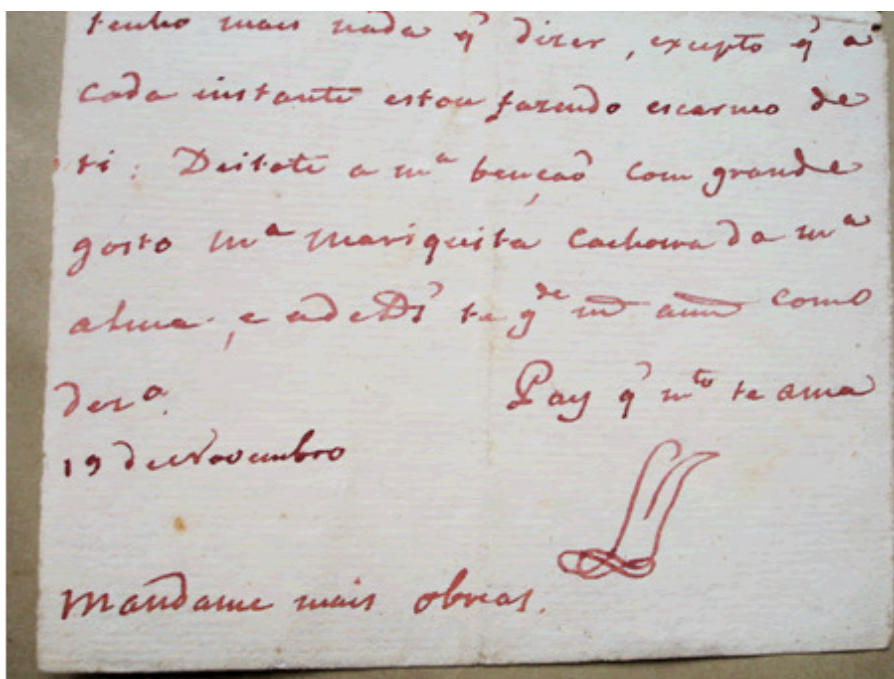 tenho mais nada q̃ dizer, excepto q̃ a
cada instante estou fazendo escarneo de
ti. Deitote a mª bençaõ com grande
gosto mª Mariquita Cachorra da mª
alma, e adeos D.s te g.de m.s ann.s como
dez.º
Pay q̃ m.to te ama
19 de Novembro
Mandame mais obreas.